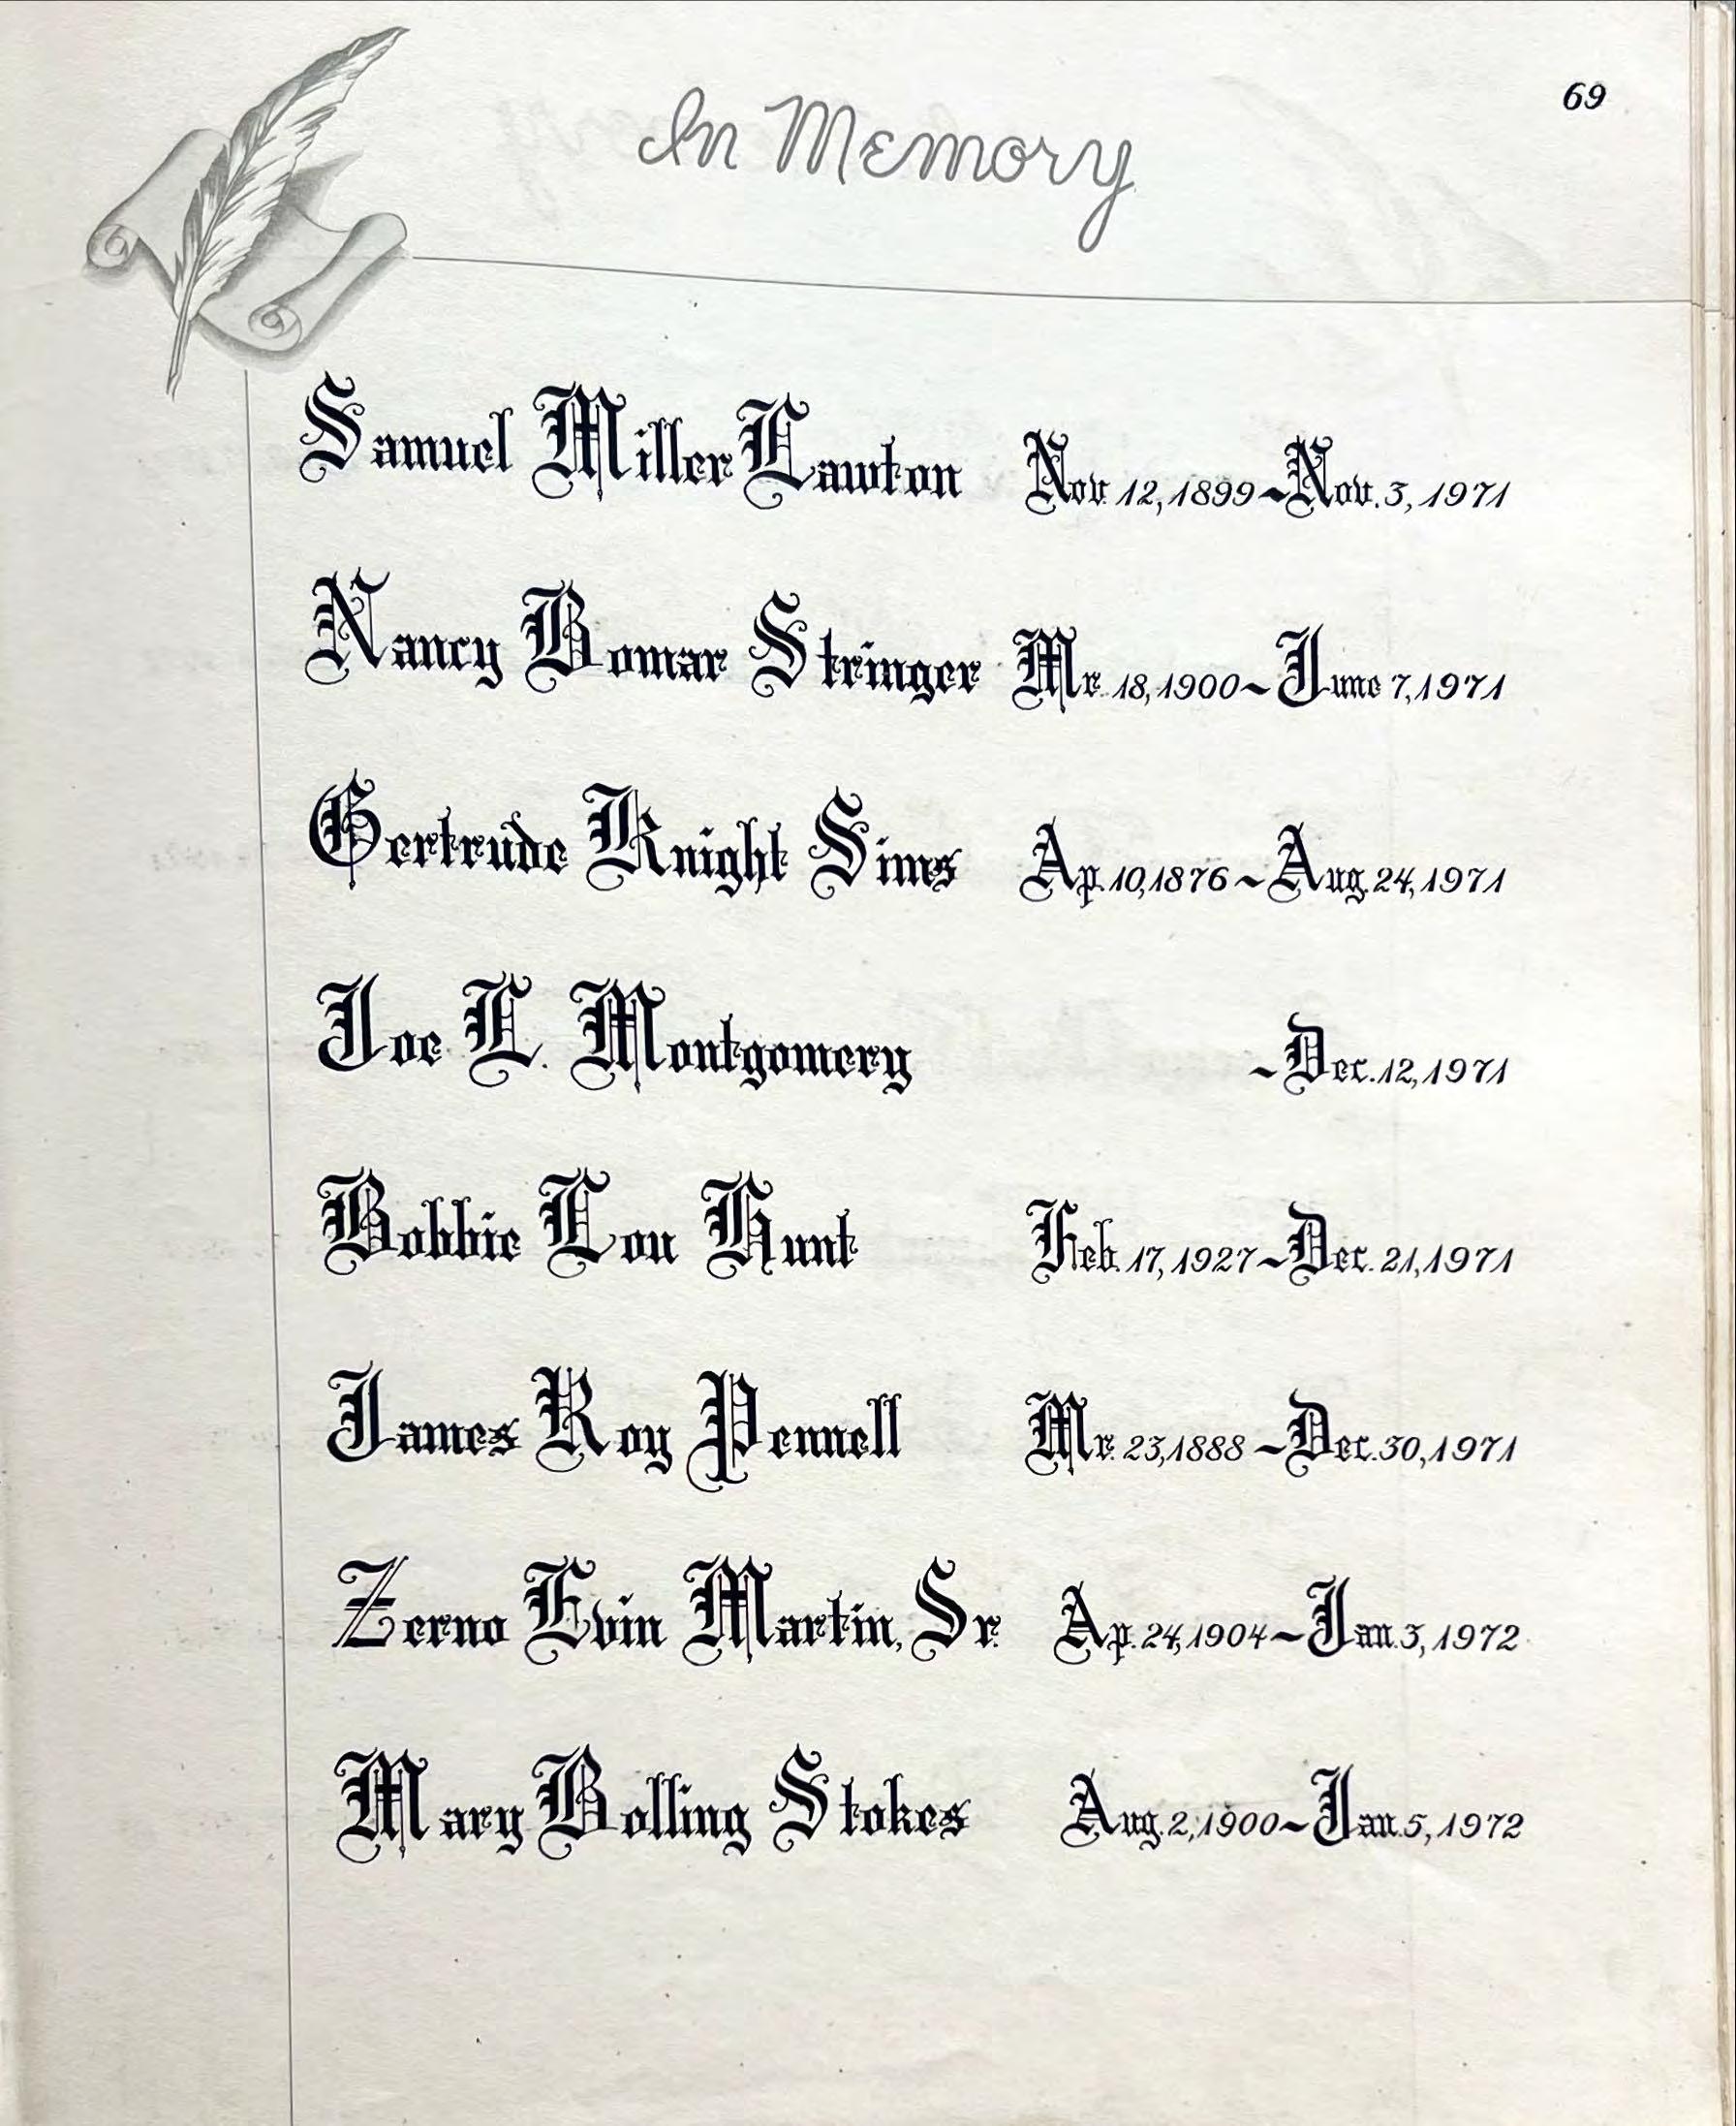 69
In Memory
Samuel Miller Lawton Nov. 12, 1899 ~ Nov. 3, 1971
Nancy Bomar Stringer Mr. 18, 1900 ~ June 7, 1971
Gertrude Knight Sims Ap. 10, 1876 ~ Aug. 24, 1971
Joe L. Montgomery ~ Dec. 12, 1971
Bobbie Lou Hunt Feb. 17, 1927 ~ Dec. 21, 1971
James Roy Pennell Mr. 23, 1888 ~ Dec. 30, 1971
Zerno Evin Martin, Sr. Ap. 24, 1904 ~ Jan. 3, 1972
Mary Bolling Stokes Aug. 2, 1900 ~ Jan. 5, 1972